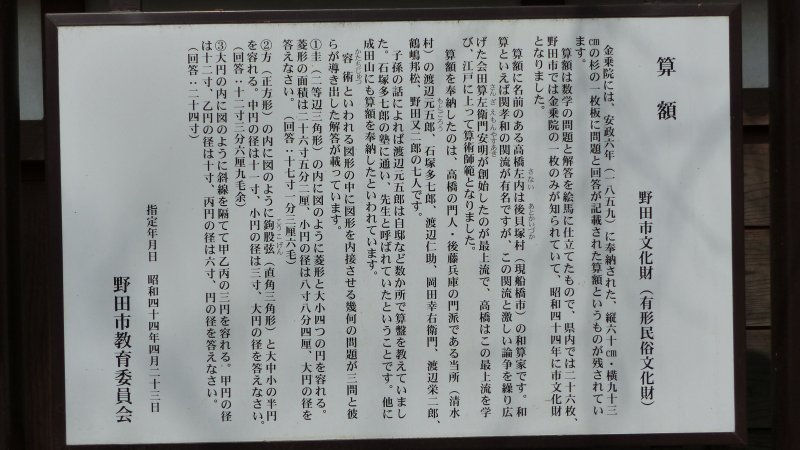 算額
野田市文化財（有形民俗文化財）
金乗院には、安政六年（一八五九）に奉納された、縦六十㎝・横九十三
㎝の杉の一枚板に問題と回答が記載された算額というものが残されてい
ます。
算額は数学の問題と解答を絵馬に仕立てたもので、県内では二十六枚、
野田市では金乗院の一枚のみが知られていて、昭和四十四年に市文化財
となりました。
算額に名前のある高橋左内は後貝塚村（現船橋市）の和算家です。和
算といえば関孝和の関流が有名ですが、この関流と激しい論争を繰り広
げた会田算左衛門安明が創始したのが最上流で、高橋はこの最上流を学
び、江戸に上って算術師範となりました。
算額を奉納したのは、高橋の門人・後藤兵庫の門派である当所（清水
村）の渡辺元五郎、石塚多七郎、渡辺仁助、岡田幸右衛門、渡辺栄二郎、
鶴嶋邦松、野田又二郎の七人です。
子孫の話によれば渡辺元五郎は自邸など数か所で算盤を教えていまし
た。石塚多七郎の塾に通い、先生と呼ばれていたということです。他に
成田山にも算額を奉納したといわれています。
容術といわれる図形の中に図形を内接させる幾何の問題が三問と彼
らが導き出した解答が載っています。
①圭（二等辺三角形）の内に図のように菱形と大小四つの円を容れる。
菱形の面積は二十六寸五分二厘、小円の径は八寸八分四厘、大円の径を
答えなさい。（回答：十七寸一分三厘六毛）
②方（正方形）の内に図のように鉤股弦（直角三角形）と大中小の半円
を容れる。中円の径は十一寸、小円の径は三寸、大円の径を答えなさい。
（回答：十二寸三分六厘九毛余）
③大円の内に図のように斜線を隔てて甲乙丙の三円を容れる。甲円の径
は十二寸、乙円の径は十寸、丙円の径は六寸、円の径を答えなさい。
（回答：二十四寸）
指定年月日　昭和四十四年四月二十三日
野田市教育委員会